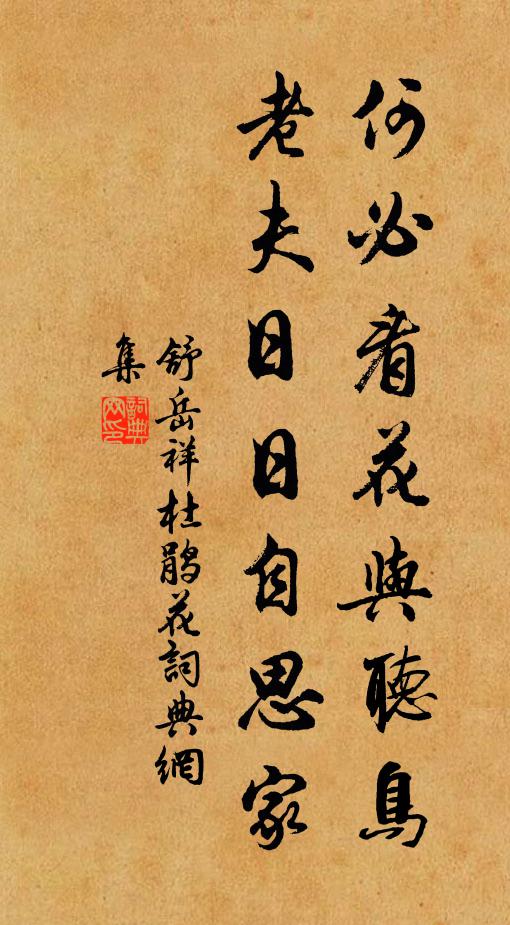 何必看花與聽鳥
老夫日日自思家
舒岳祥杜鵑花詞典網
集
詞典網印